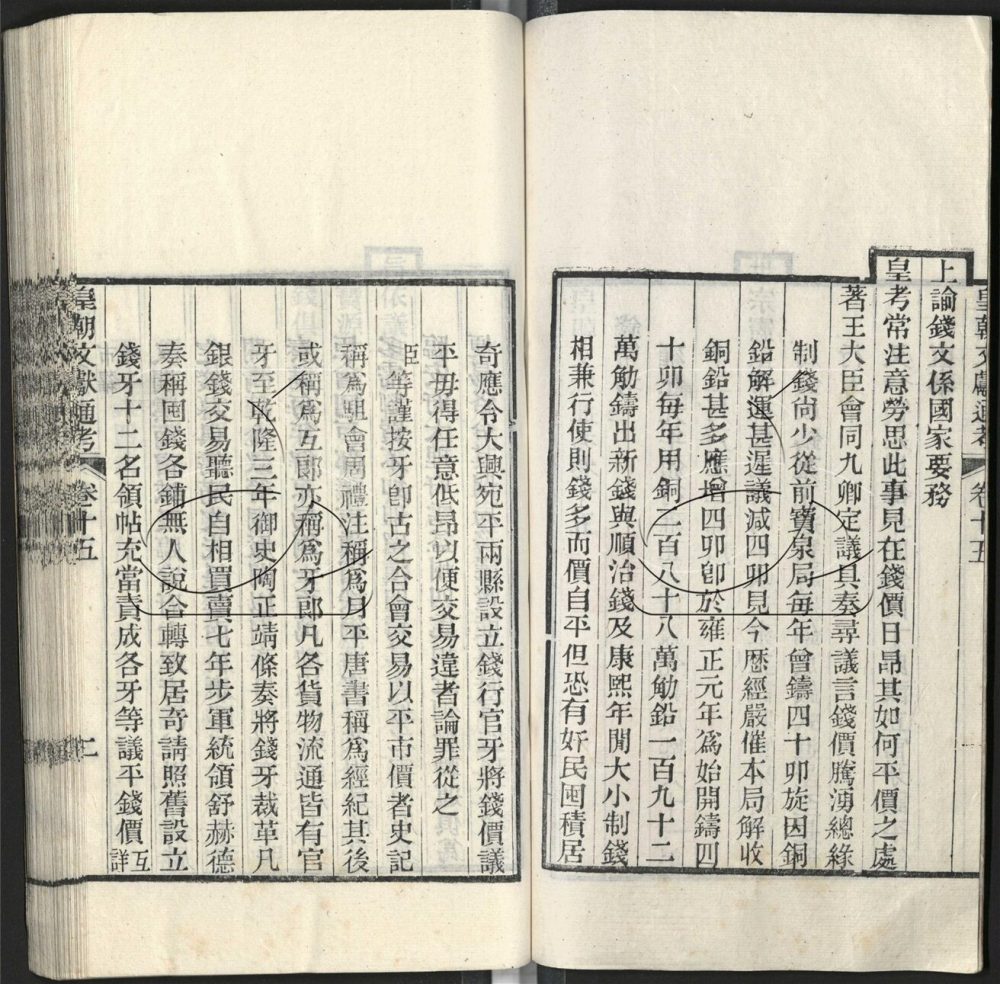 皇朝文獻通考 卷十五
上諭錢文係國家要務
皇考常注意勞思此事見在錢價日昂其如何平價之處
著王大臣會同九卿定議具奏尋議言錢價騰湧總緣
制錢尚少從前寶泉局每年曾鑄四十卯旋因銅
鉛解運甚遲議減四卯見今歷經嚴催本局解收
銅鉛甚多應增四卯卽於雍正元年爲始開鑄四
十卯每年用銅二百八十八萬觔鉛一百九十二
萬觔鑄出新錢與順治錢及康熙年閒大小制錢
相兼行使則錢多而價自平但恐有奸民囤積居
奇應令大興宛平兩縣設立錢行官牙將錢價議
平毋得任意低昂以便交易違者論罪從之
臣等謹按牙卽古之合會交易以平市價者史記
稱爲駔會周禮注稱爲月平唐書稱爲經紀其後
或稱爲互郎亦稱爲牙郎凡各貨物流通皆有官
牙至乾隆三年御史陶正靖條奏將錢牙裁革凡
銀錢交易聽民自相買賣七年步軍統領舒赫德
奏稱囤錢各鋪無人說合轉致居奇請照舊設立
錢牙十二名領帖充當責成各牙等議平錢價互詳
皇朝文獻通考 卷十五